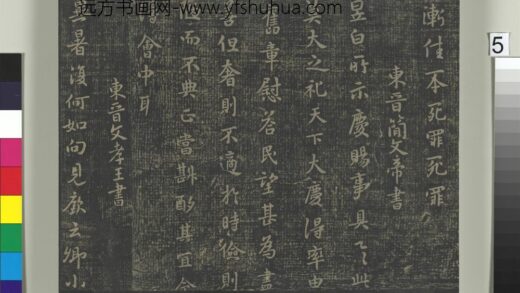 远方书画网-www.yfshuhua.com
漸佳不死罪死罪
東晉簡文帝書
昱白所示慶賜事具之此
莫大之礼天下大慶得率由
舊章慰荅民望其為盡
善但奢則不適於時儉則
而不典正當斟酌其宜令
會中耳
東晉文孝王書
暑復何如向見云卿小
5